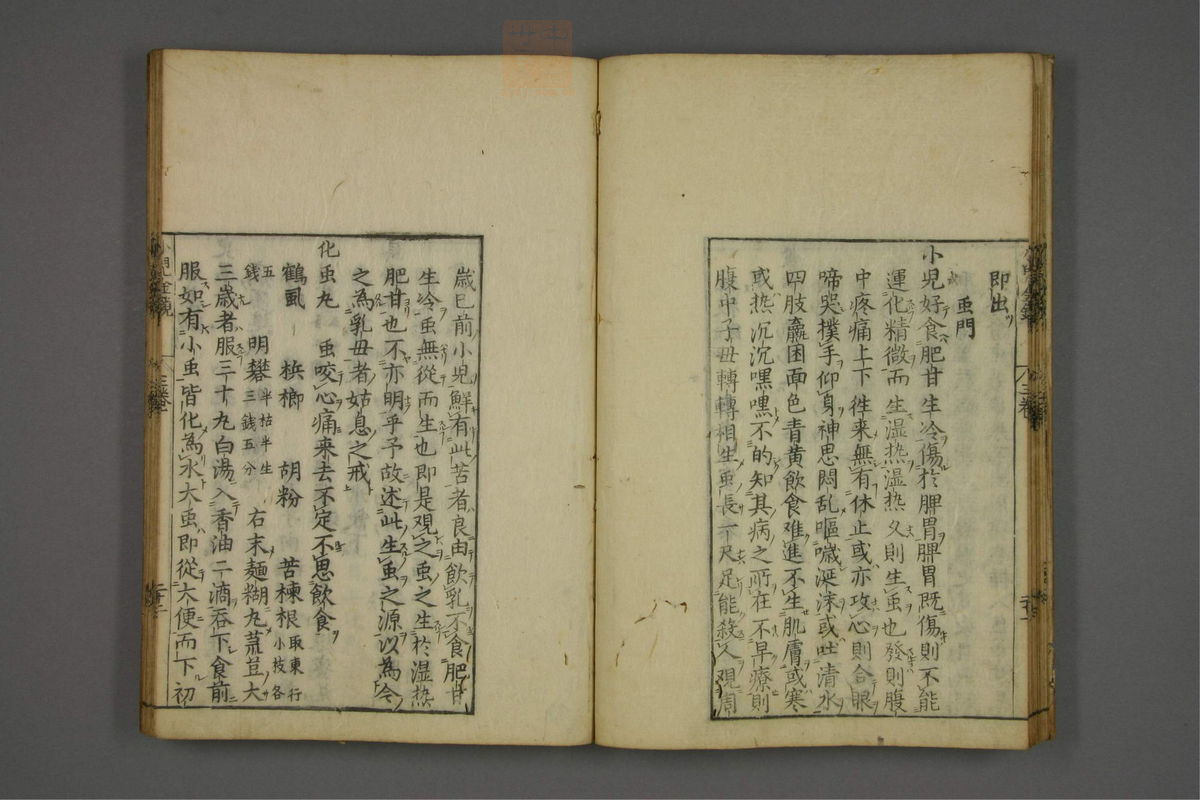 即出
虫門
小児好食肥甘生冷傷於脾胃脾胃既傷則不能
運化精微而生湿热湿热久則生虫也發則腹
中疼痛上下徃来無有休止或亦攻心則合眼
啼哭撲手仰身神思悶乱嘔噦涎沫或吐清水
四肢羸困面色青黄飲食难進不生肌膚或寒
或热沉沉嘿嘿不的知其病之所在不早療則
腹中子母轉轉相生虫長一尺足能殺人観周
歳已前小児鮮有此苦者良由飲乳不食肥甘
生冷虫無從而生也即是观之虫之生於湿热
肥甘也不亦明乎予故述此生虫之源以為今
之為乳母者姑息之戒
化虫丸 虫咬心痛来去不定不思飲食
鶴虱 梹榔 胡粉 苦楝根取東行小枝各
五錢 明礬三錢五分半枯半生 右末麺糊丸荒荳大
三歳者服三十丸白湯入香油二滴吞下食前
服如有小虫皆化為水大虫即從大便而下初